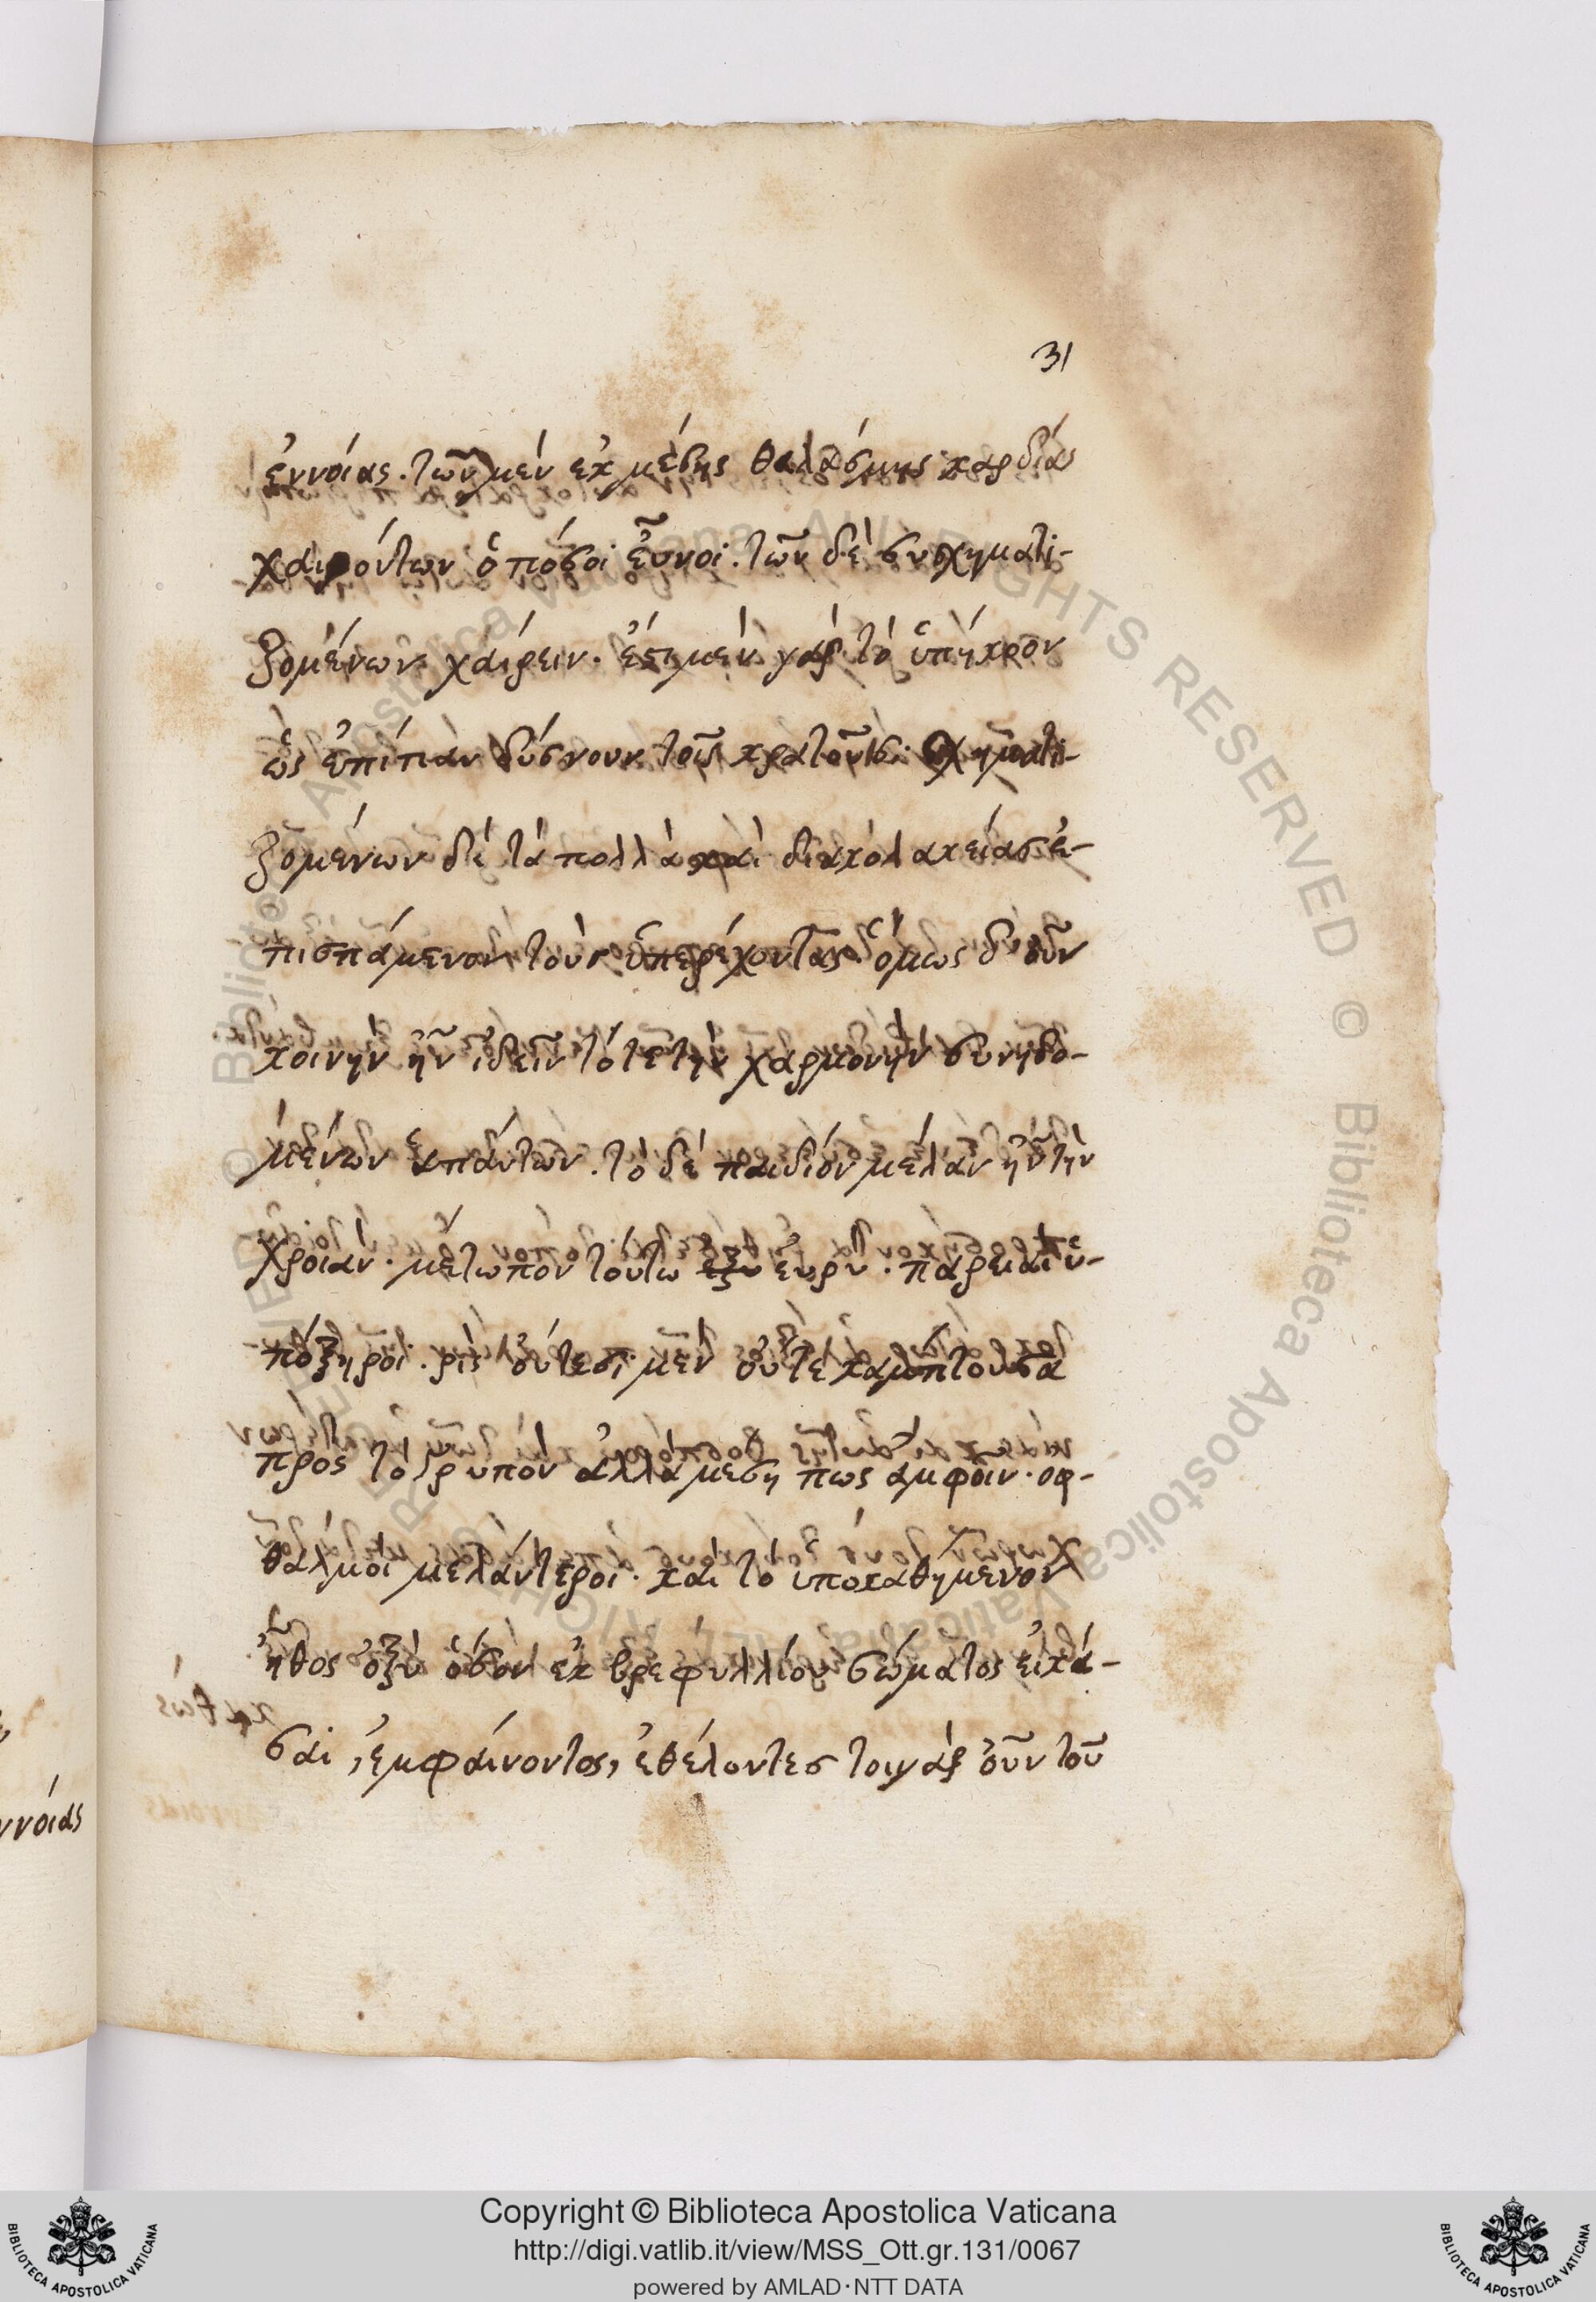 31
ἐννοίας. τῶν μέν ἐκ μέσης θαλάσμης καρδίας
χαιρόντων ὁπόσοι εὖνοι. τῶν δὲ συσχηματι-
ζομένων χαίρειν. ἐστι μέν γὰρ τὸ ὑπήκρον
ὡς ἐπίπαν δύσνουν τοῖς κρατοῦσι. σχηματι-
ζομένων δέ τά πολλά καὶ διακολακείας ἐ-
πισπάμενον τοὺς ὑπερέχοντας. ὅμως δ' οὖν
κοινήν ἦν ἰδεῖν τότε τὴν χαρμονήν συνηδο-
μένων ἁπάντων. τὸ δέ παιδίον μέλαν ἦν τὴν
χροιάν. μέτωπον τούτω εὐρυ. παρειαί ὑ-
πόξηροι. ρίς οὔτε σιμὲν οὔτε καμπτουσα
πρὸς τὸ γρυπον ἀλλά μεση πως ἀμφοῖν. οφ-
θαλμοί μελάντεροι. καὶ τὸ ὑποκαθημενον
ἦθος ὀξύ ὅσον ἐκ βρεφυλλίου σώματος εἰκά-
σαι, ἐμφαίνοντος, ἐθέλοντες τοιγάρ οὖν τοῦ
ννοίας
Copyright © Biblioteca Apostolica Vaticana
http://digi.vatlib.it/view/MSS_Ott.gr.131/0067
powered by AMLAD·NTT DATA
BIBLIOTECA APOSTOLICA VATICANA
BIBLIOTECA APOSTOLICA VATICANA